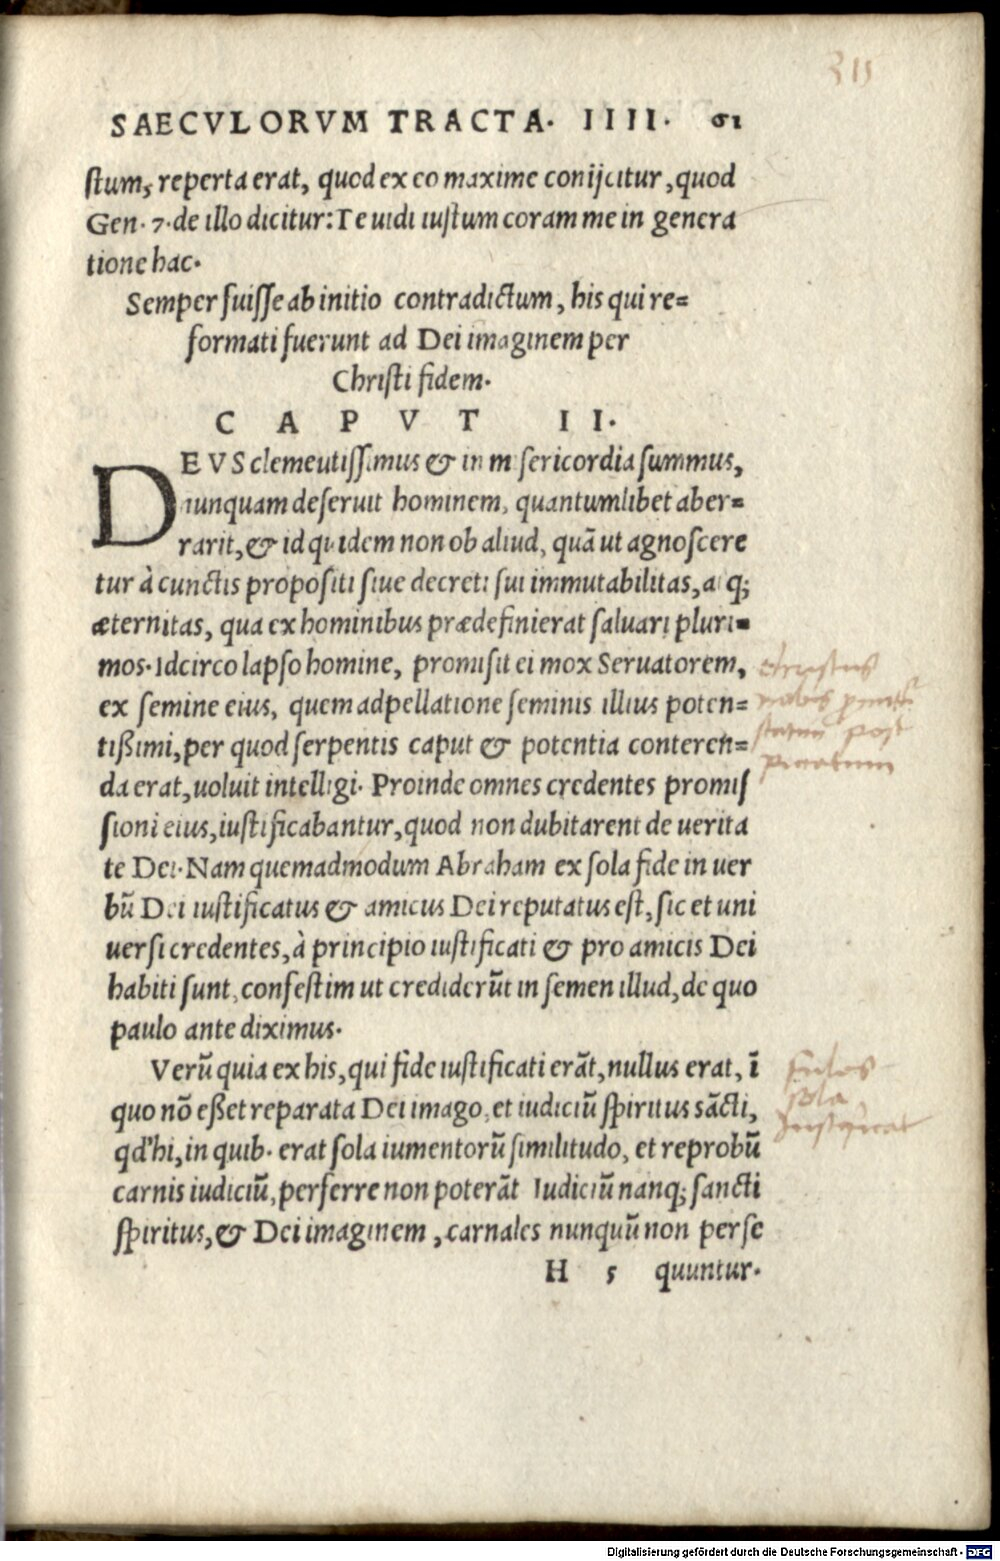 315
SAECVLORVM TRACTA. IIII. 61
stum, reperta erat, quod ex eo maxime conijcitur, quod
Gen. 7. de illo dicitur: Te uidi iustum coram me in genera
tione hac.
Semper fuisse ab initio contradictum, his qui re=
formati fuerunt ad Dei imaginem per
Christi fidem.
CAPVT II.
DEVS clementissimus & in misericordia summus,
nunquam deseruit hominem, quantumlibet aber=
rarit, & id quidem non ob aliud, quā ut agnoscere
tur à cunctis propositi siue decreti sui immutabilitas, atq;
æternitas, qua ex hominibus prædefinierat saluari pluri=
mos. Idcirco lapso homine, promisit ei mox Seruatorem,
ex semine eius, quem adpellatione seminis illius poten=
tißimi, per quod serpentis caput & potentia conteren=
da erat, uoluit intelligi. Proinde omnes credentes promis
sioni eius, iustificabantur, quod non dubitarent de uerita
te Dei. Nam quemadmodum Abraham ex sola fide in uer
bū Dei iustificatus & amicus Dei reputatus est, sic et uni
uersi credentes, à principio iustificati & pro amicis Dei
habiti sunt, confestim ut crediderūt in semen illud, de quo
paulo ante diximus.
Verū quia ex his, qui fide iustificati erāt, nullus erat, ī
quo nō eßet reparata Dei imago, et iudiciū spiritus sācti,
qd' hi, in quib. erat sola iumentorū similitudo, et reprobū
carnis iudiciū, perferre non poterāt Iudiciū nanq; sancti
spiritus, & Dei imaginem, carnales nunquū non perse
H 5 quuntur.
Christus
nobis
post
peccatum
fides
sola
Digitalisierung gefördert durch die Deutsche Forschungsgemeinschaft - DFG